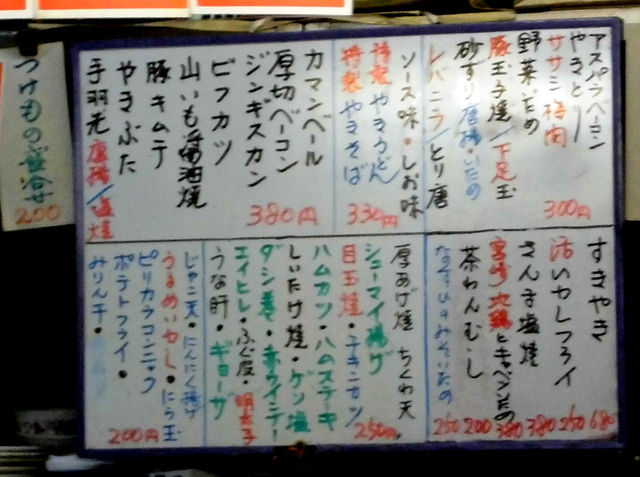 アスパラベーコン
やきとり
ササミ梅肉
野菜いため
豚玉子焼/下足玉
砂ずり 唐揚・いため
レバニラ/とり唐
300円
ソース味・しお味
特製 やきうどん
特製 やきそば
330円
カマンベール
厚切ベーコン
ジンギスカン
ビフカツ
山いも醤油焼
豚キムチ
やきぶた
手羽先 唐揚/塩焼
380円
すきやき 680
活いかしつライ 250
さんま塩焼 380
宮崎地鶏とキャベツいため 380
茶わんむし 200
なすびのみそいため 250
厚あげ焼 ちくわ天
シューマイ揚げ
目玉焼・チキンカツ
ハムカツ・ハムステーキ
しいたけ焼・ゲソ塩
ダシ巻・赤ウインナー
エイヒレ・ふぐ皮・明太子
うな肝・ギョーザ
250円
じゃこ天・にんにく揚げ
うるめいわし・にら玉
ピリカラコンニャク
ポテトフライ・
みりん干・
200円
つけもの盛合せ
200